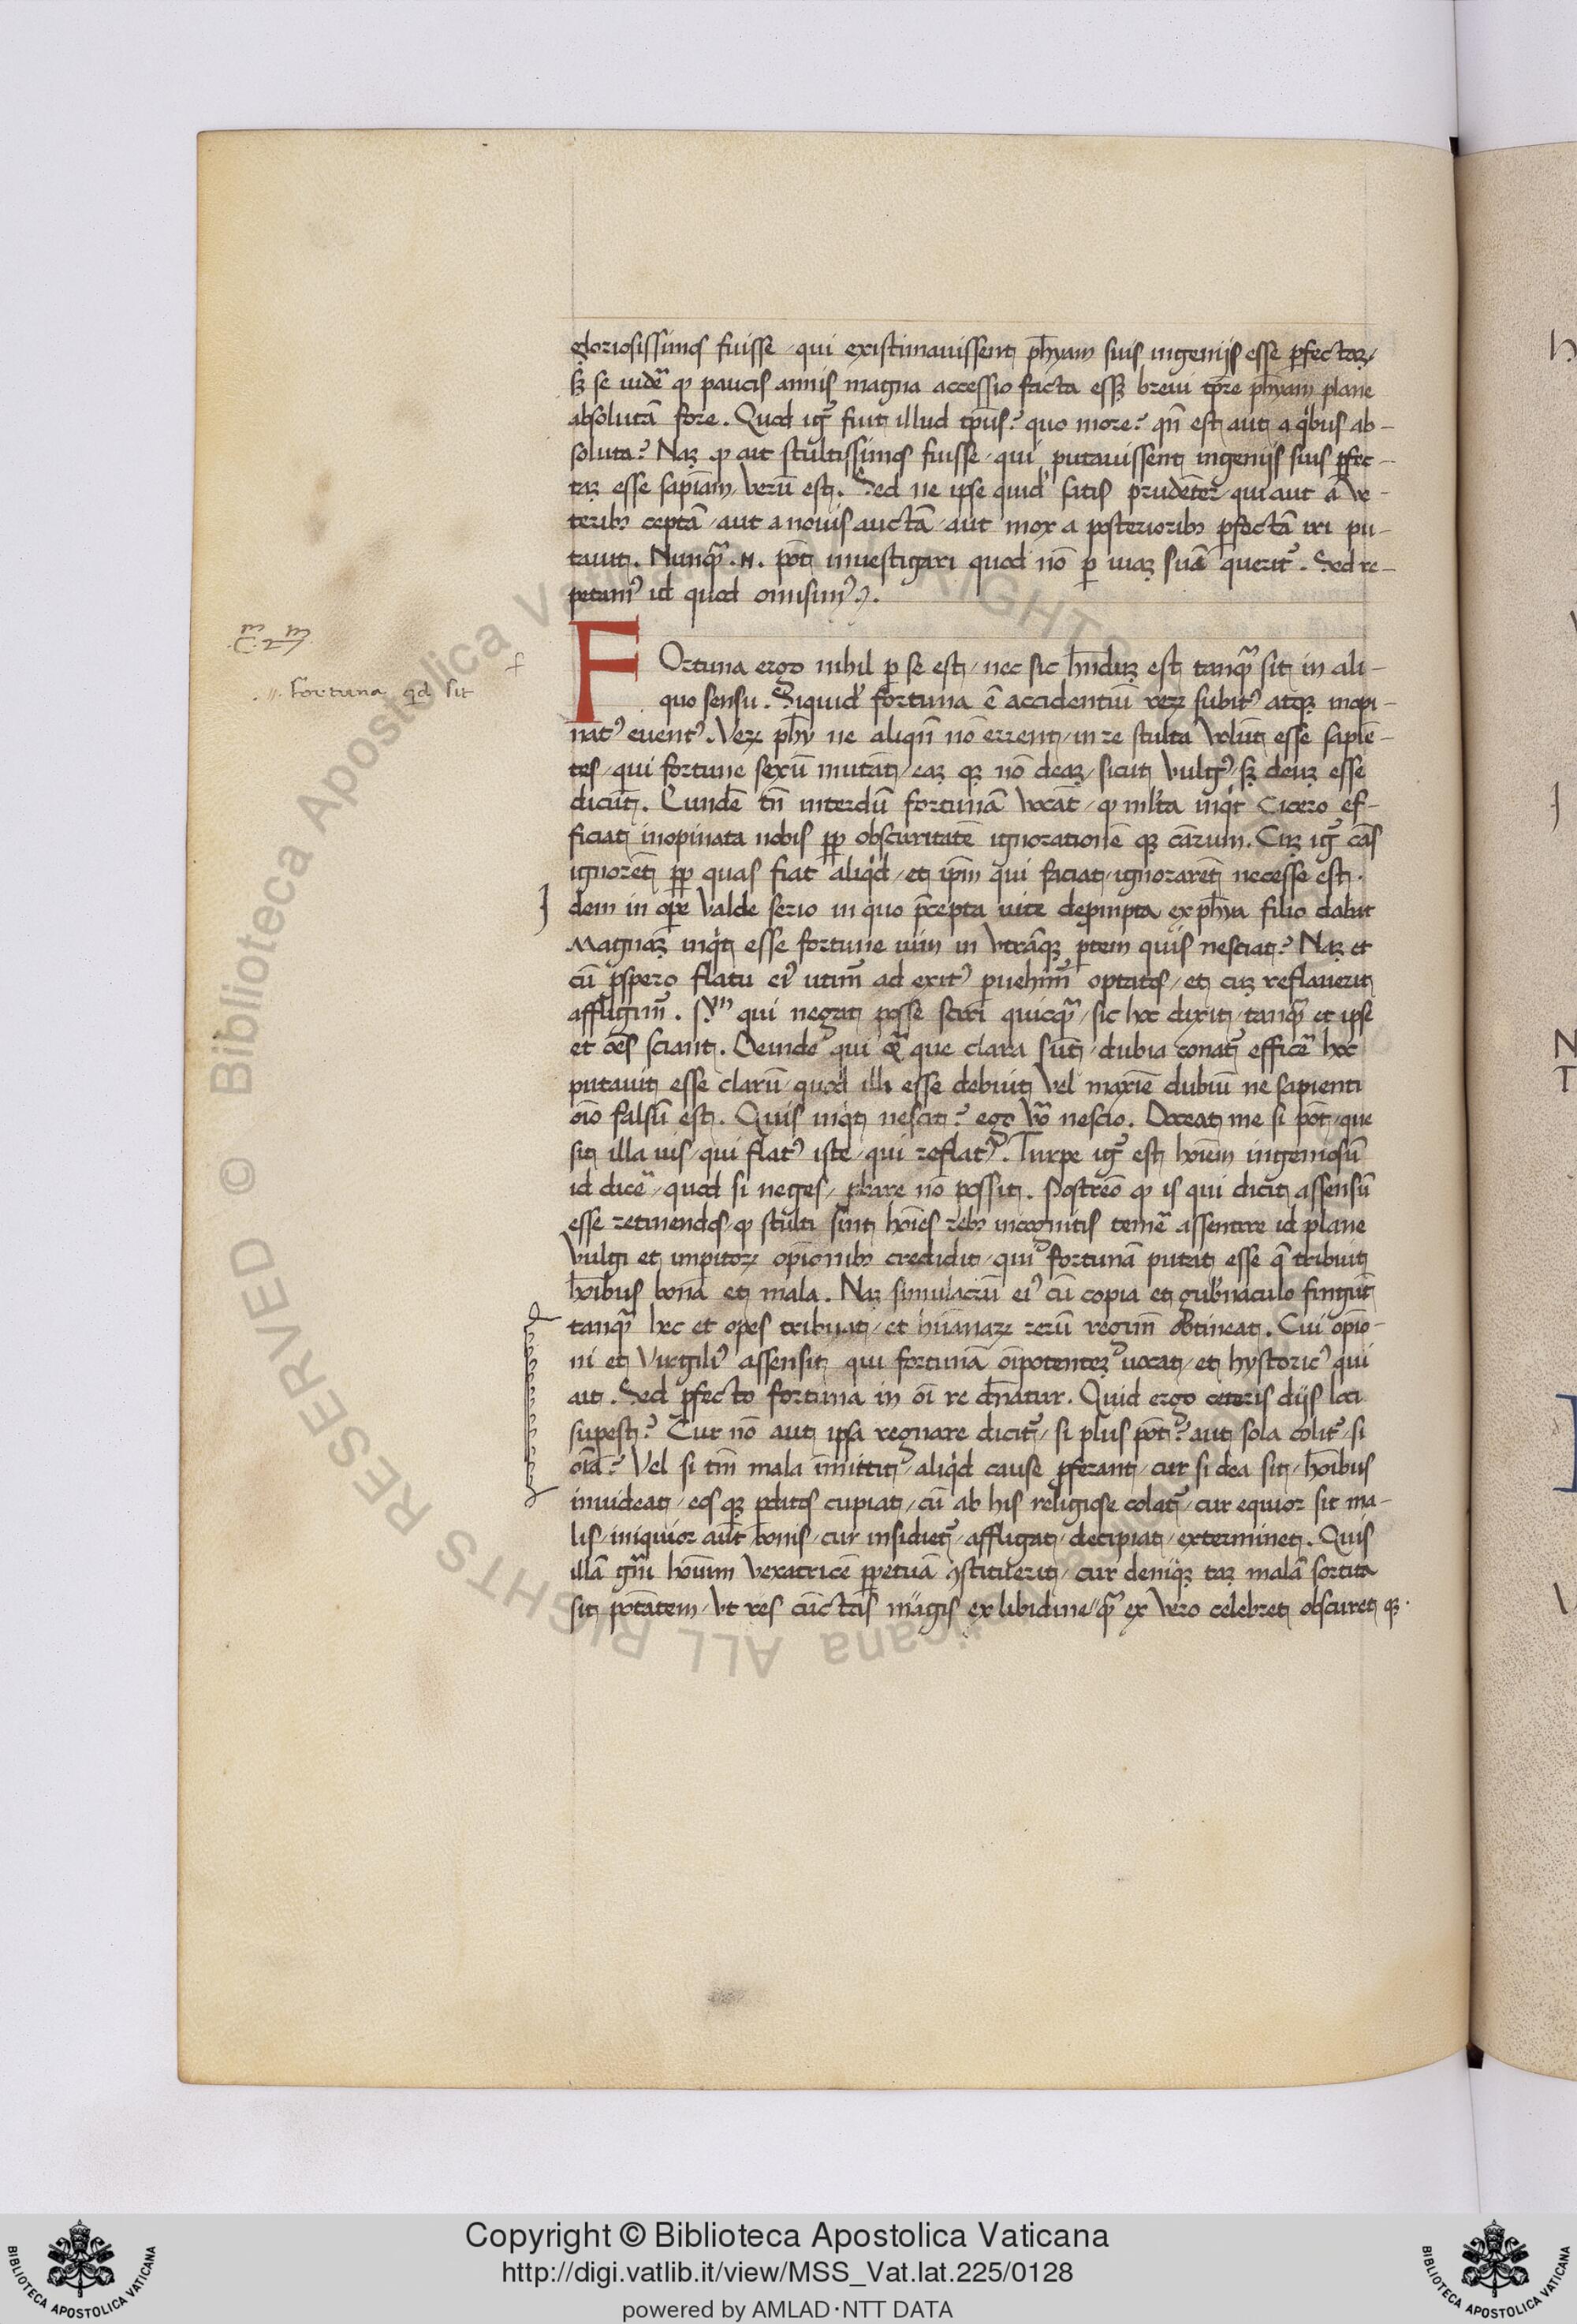 gloriosissimos fuisse / qui existimauissent ph̄yam suis ingenijs esse ꝑfectaꝫ /
sꝫ se uide͂ ꝙ paucis annis magna accessio facta essꝫ breui tp̄re ph̄yam plane
absolutā fore . Quod ig̃ fuit illud tp̄us ? quo more ? qn̄ est aut a qⁱbus ab -
soluta ? Naꝫ ꝙ ait stultissimos fuisse / qui putauissent ingenijs suis ꝑfec -
taꝫ esse sapīam / verū est . Sed ne ipse quid' satis prudēter / qui aut a ve -
teribꝫ ceptā / aut a nouis auctā / aut mox a posterioribꝫ ꝑfectā iri pu -
tauit . Nunqᷓ .n. pōt inuestigari quod nō ꝑ uiaꝫ suā querit᷑ . Sed re -
petamꝰ id quod omisimꝰ .
m m
.C. 27.
FOrtuna ergo nihil ꝑ se est / nec sic h̄nduꝫ est tanqᷓ sit in ali -
.,,. Fortuna qd sit
quo sensu . Siquid' fortuna ē accidentiū reꝝ subitꝰ atqꝫ inopi -
natꝰ euentꝰ . Veꝝ ph̄y ne aliqn̄ nō errent / in re stulta volūt esse sapiē -
tes / qui fortune sexū mutāt / eaꝫ qꝫ nō deaꝫ / sicut vulgꝰ / sꝫ deuꝫ esse
dicūt . Eundē tn̄ interdū fortunā vocāt / ꝙ ml'ta inqⁱt Cicero ef -
ficiat inopinata nobis ꝓp obscuritatē ignorationē qꝫ cārum . Cuꝫ ig̃ cās
ignorēt ꝓp quas fiat aliqⁱd / et ip̄m qui faciat / ignorarēt necesse est .
I
dem in oꝑe valde serio in quo p̄cepta uite deprompta ex ph̄ya filio dabat
Magnaꝫ inqⁱt esse fortune uim in vtrāqꝫ ꝑtem quis nesciat ? Naꝫ et
cū ꝓspero flatu eiꝰ utim᷑ ad exitꝰ ꝑuehim᷑ optatos / et cuꝫ reflauerit
affligim᷑ . qui negat posse sciri quicqᷓ / sic hoc dixit / tanqᷓ et ipse
et oēs sciant . Deinde qui que clara sūt / dubia conat᷑ efficē hoc
putauit esse clarū / quod illi esse debuit vel maxīe dubiū ne sapienti
oīo falsū est . Quis inqⁱt nescit ? ego vo̅ nescio . Doceat me si pōt / que
sit illa uis / qui flatꝰ iste / qui reflatꝰ . Turpe ig̃ est hoīem ingeniosū
id dice͂ / quod si neges / ꝓbare nō possit . Postreō ꝙ is qui dicit assensū
esse retinendos / ꝙ stulti sint hoīes rebꝫ incognitis teme͂ assentire id plane
vulgi et imperitoꝝ opīonibꝫ credidit / qui fortunā putat esse q̄ tribuit
hoībus bona et mala . Naꝫ simulacrū eiꝰ cū copia et gub'naculo fingūt
tanqᷓ hec et opes tribuat / et humanaꝝ rerū regim̄ obtineat . Cui opīo -
ni et Virgiliꝰ assensit qui fortunā oīpotenteꝫ uocat / et hystoricꝰ qui
ait . Sed ꝓfecto fortuna in oī re dn̄atur . Quid ergo ceteris dijs loci
suꝑest ? Cur nō aut ipsa regnare dicit᷑ / si plus pōt ? aut sola colit᷑ / si
oīa ? Vel si tm̄ mala īmittit / aliqⁱd cause ꝓferant / cur si dea sit / hoībus
inuideat / eos qꝫ ꝑditos cupiat / cū ab his religiose colat᷑ / cur equior sit ma -
lis / iniquior aūt bonis / cur insidiet᷑ / affligat / decipiat / exterminet . Quis
illā gn̄i hoīum vexatricē ꝑpetuā ꝯstituerit / cur deniqꝫ taꝫ malā sortita
sit ptātem / vt res cūctas magis ex libidine qᷓ ex vero celebret obscuret qꝫ .
Copyright © Biblioteca Apostolica Vaticana
http://digi.vatlib.it/view/MSS_Vat.lat.225/0128
powered by AMLAD·NTT DATA